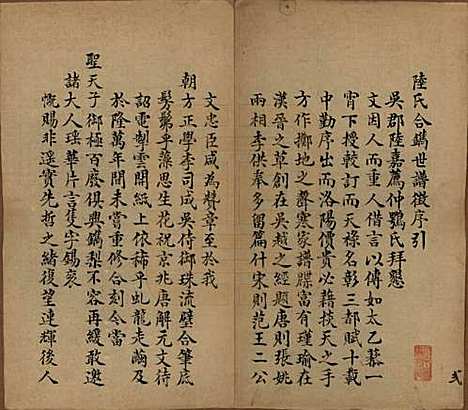 陸氏合鐫世譜徵序引
吳郡陸嘉薦仲鸚氏拜懇
文因人而重人借言以傳如太乙藜一
宵下授較訂而天祿名彰三都賦十載
中勤序出而洛陽價貴必藉掞天之手
方作擲地之聲寒家譜牒富有瑾瑜在
漢晉之草創在吳越之經題唐則張姚
兩相李供奉多留篇什宋則范王二公
文忠臣咸為贊章至於我
朝方正學李司成吳待御珠流璧合筆底
髣髴平藻思生花祝京兆唐解元文待
詔電掣雲開紙上依稀乎虬龍走繭及
於隆萬年間未嘗重修合刻今當
聖天子御極百廢俱興鐫梨不容再緩敢邀
諸大人瑤華片言隻字錫袞
慨賜非遙實先哲之緒復望連輝後人